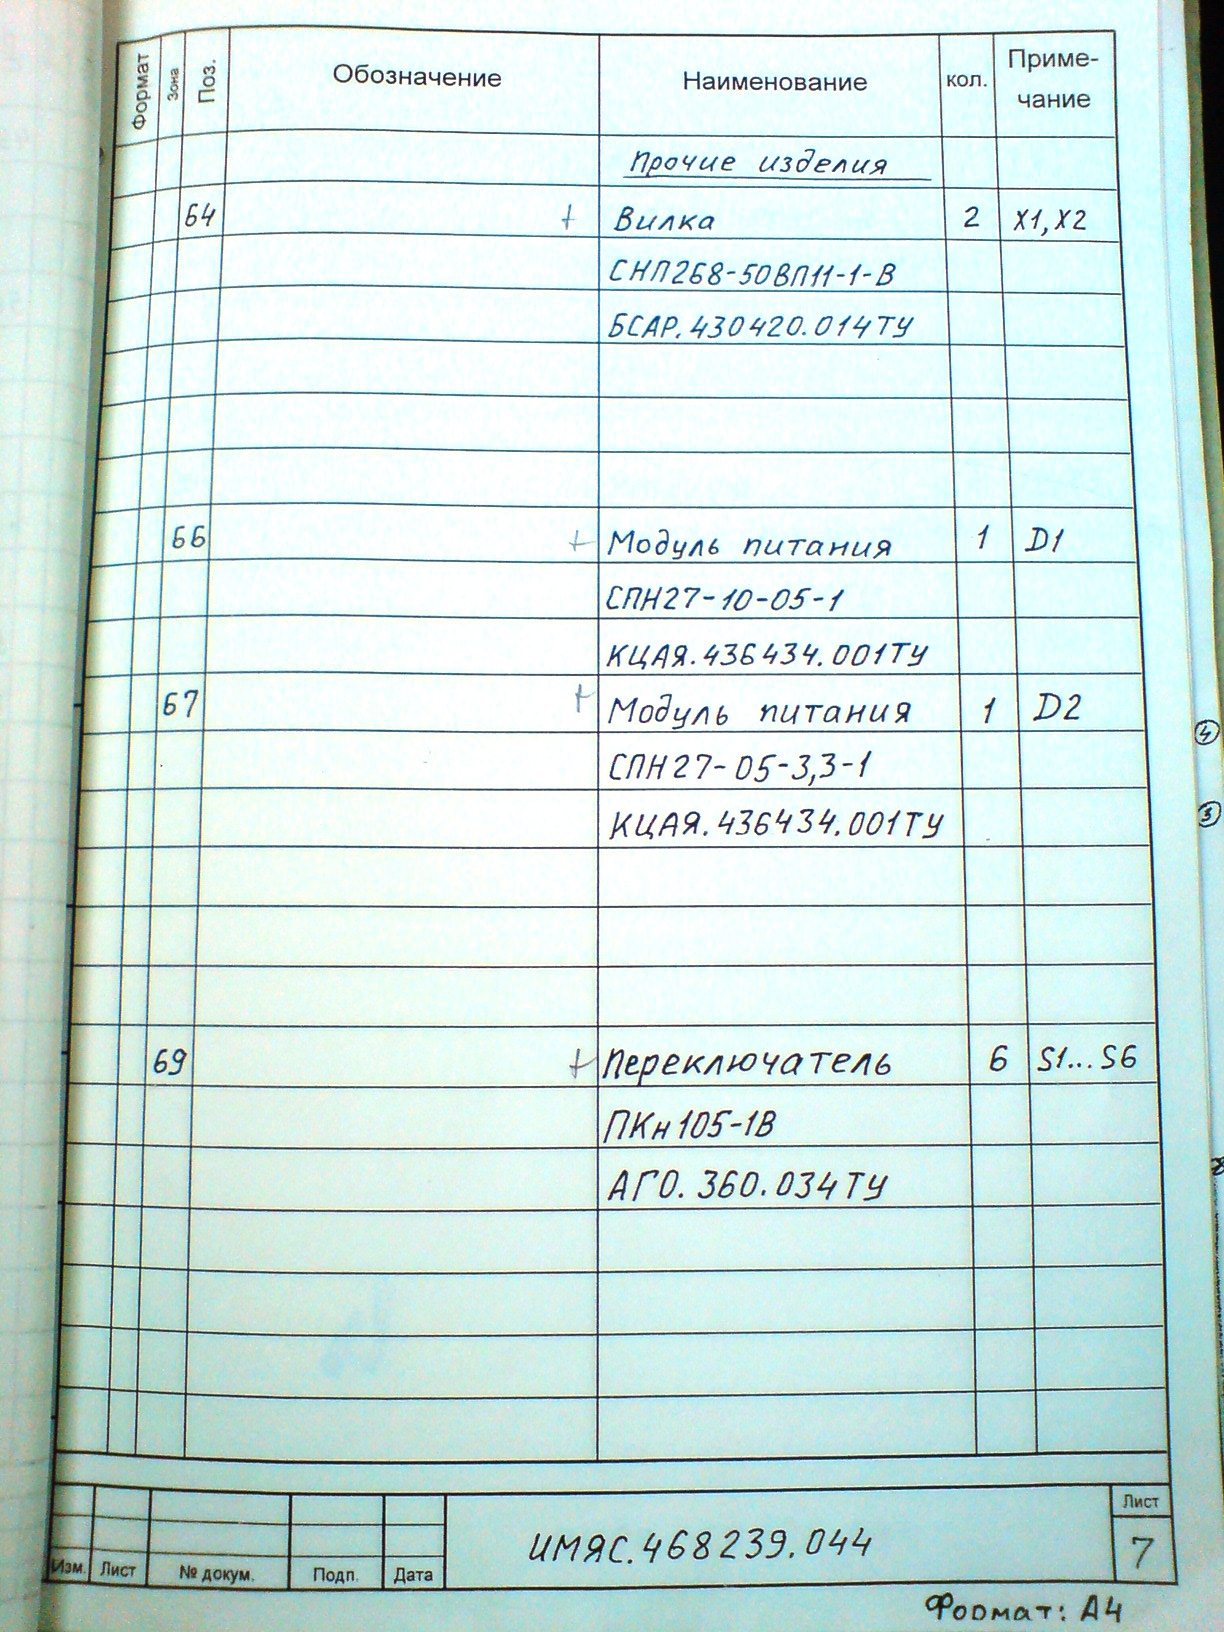 Формат Зона Поз. Обозначение Наименование кол. Приме-
чание
Прочие изделия
64 + Вилка 2 X1, X2
СНП268-50ВП11-1-В
БСАР.430420.014ТУ
66 + Модуль питания 1 D1
СПН27-10-05-1
КЦАЯ.436434.001ТУ
67 + Модуль питания 1 D2
СПН27-05-3,3-1
КЦАЯ.436434.001ТУ
4
3
69 + Переключатель 6 S1...S6
ПКн105-1В
АГ0.360.034ТУ
Изм. Лист № докум. Подп. Дата
ИМЯС.468239.044
Лист
7
Формат: А4